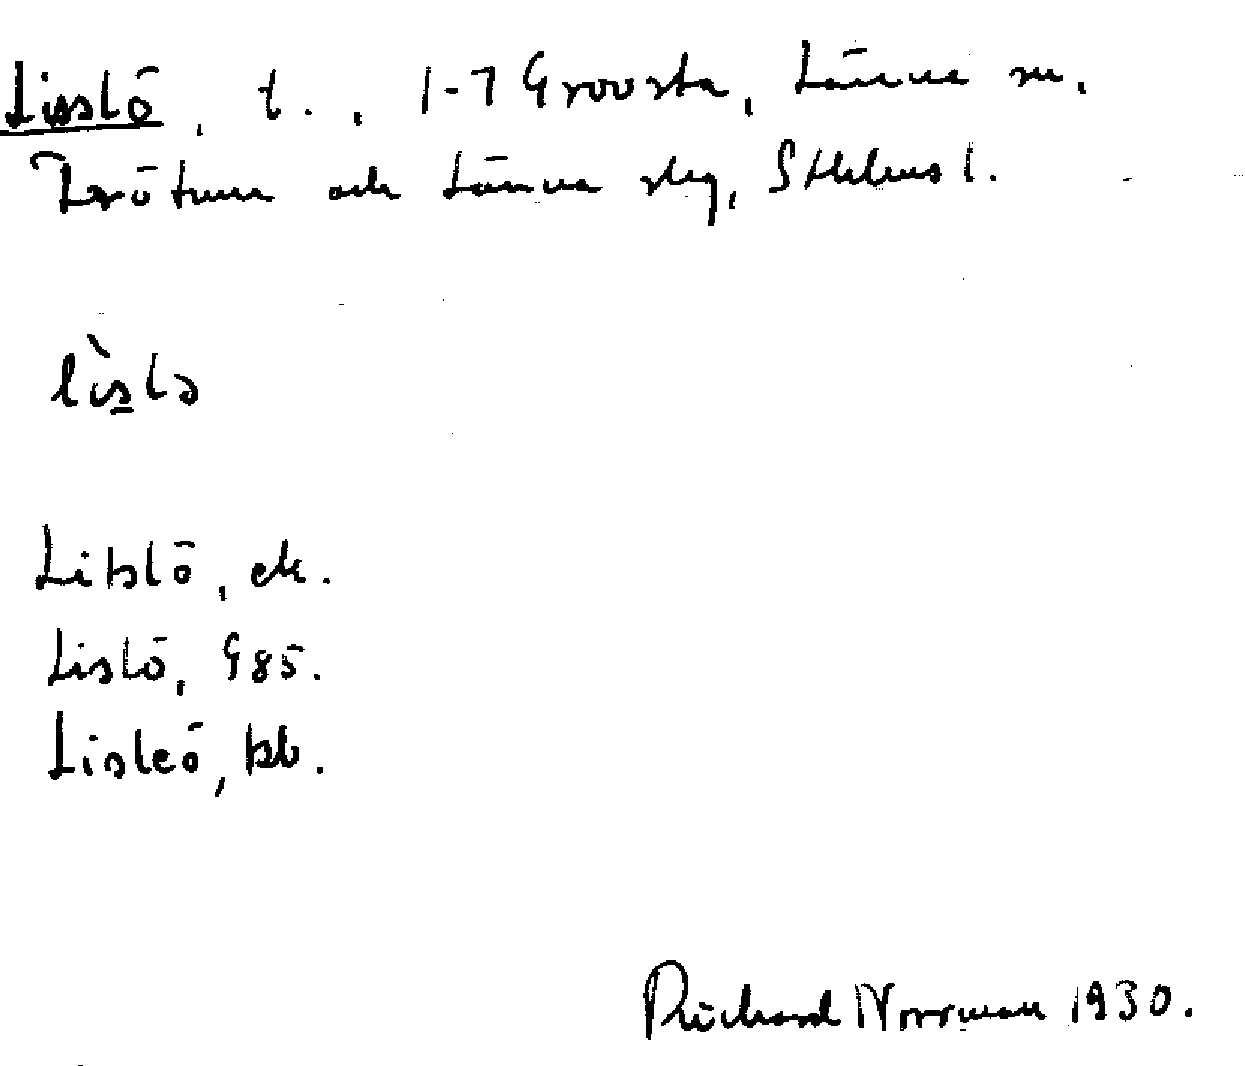 Lisslö, t., 1-7 Grovsta, Länna sn,
Frötuna och Länna skg, Sthlms l.
lìslə
Litslö, ek.
Lislö, G85.
Lisleö, bb.
Richard Norrman 1930.